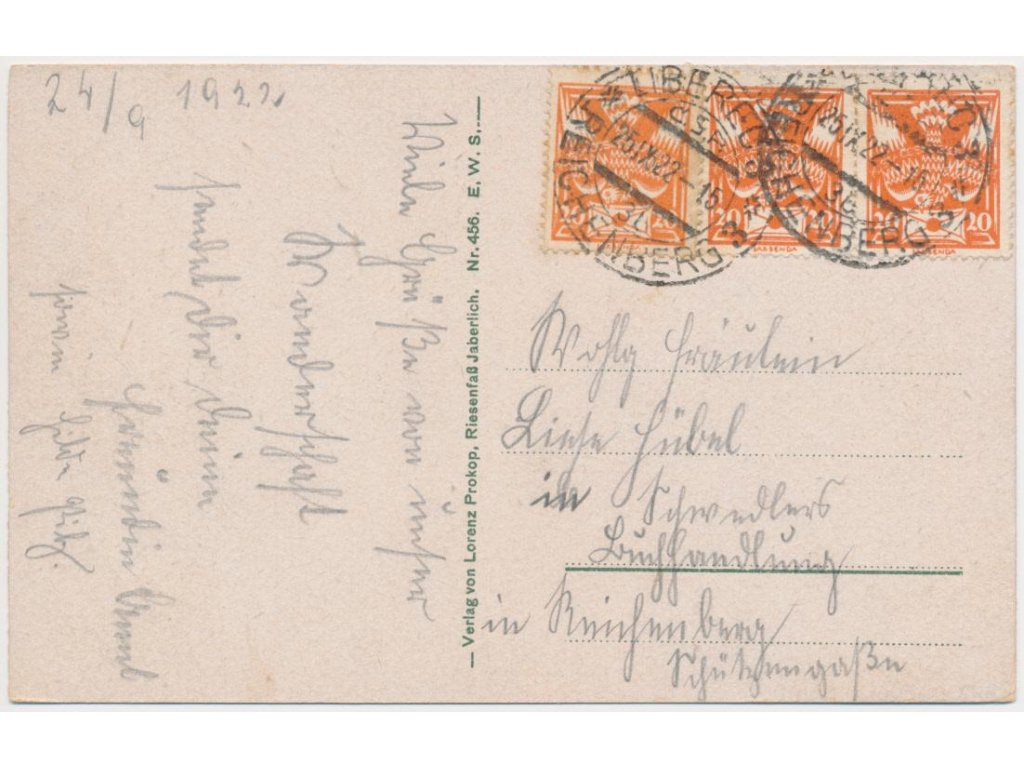 24/9 1922
Viele Grüße von unser
Wanderschaft
sendet dir deine
Freundin
Verlag von Lorenz Prokop, Riesenfaß Jaberlich. Nr. 456. E. W. S.
LIBEREC
REICHENBERG 3
25.IX.22-15
20 20
20 20
Wohlg Fräulein
Liese Hübel
in Schwedlers
Buchhandlung
in Reichenberg
Schützengaße